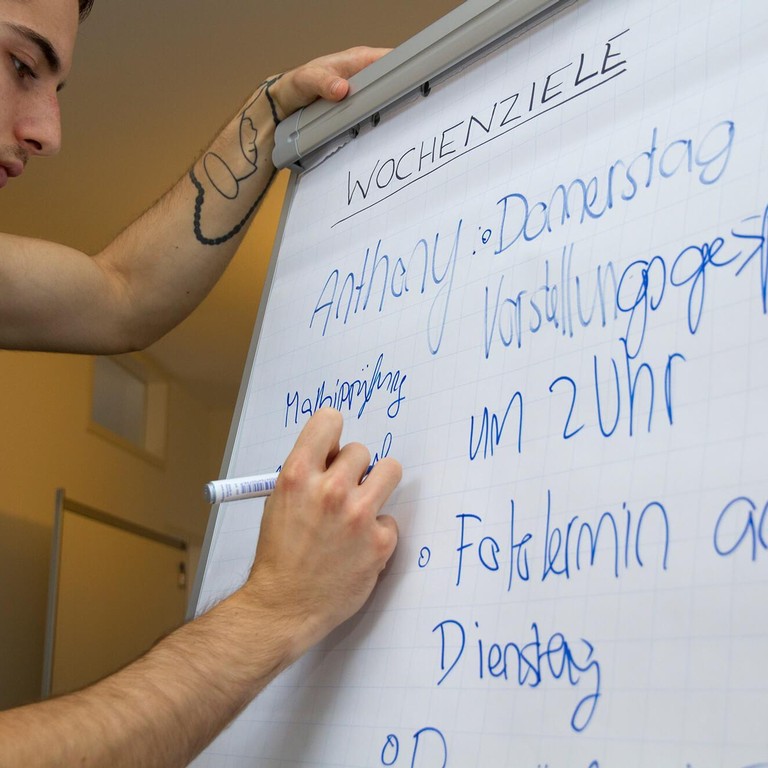 WOCHENZIELE
Anthony: Donnerstag
Vorstellungsgesp
um 2 Uhr
Fototermin
Dienstag